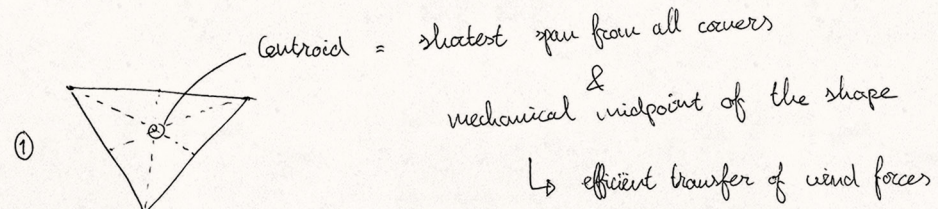 Centroid = shortest span from all corners
&
mechanical midpoint of the shape
①
↳ efficiënt transfer of wind forces